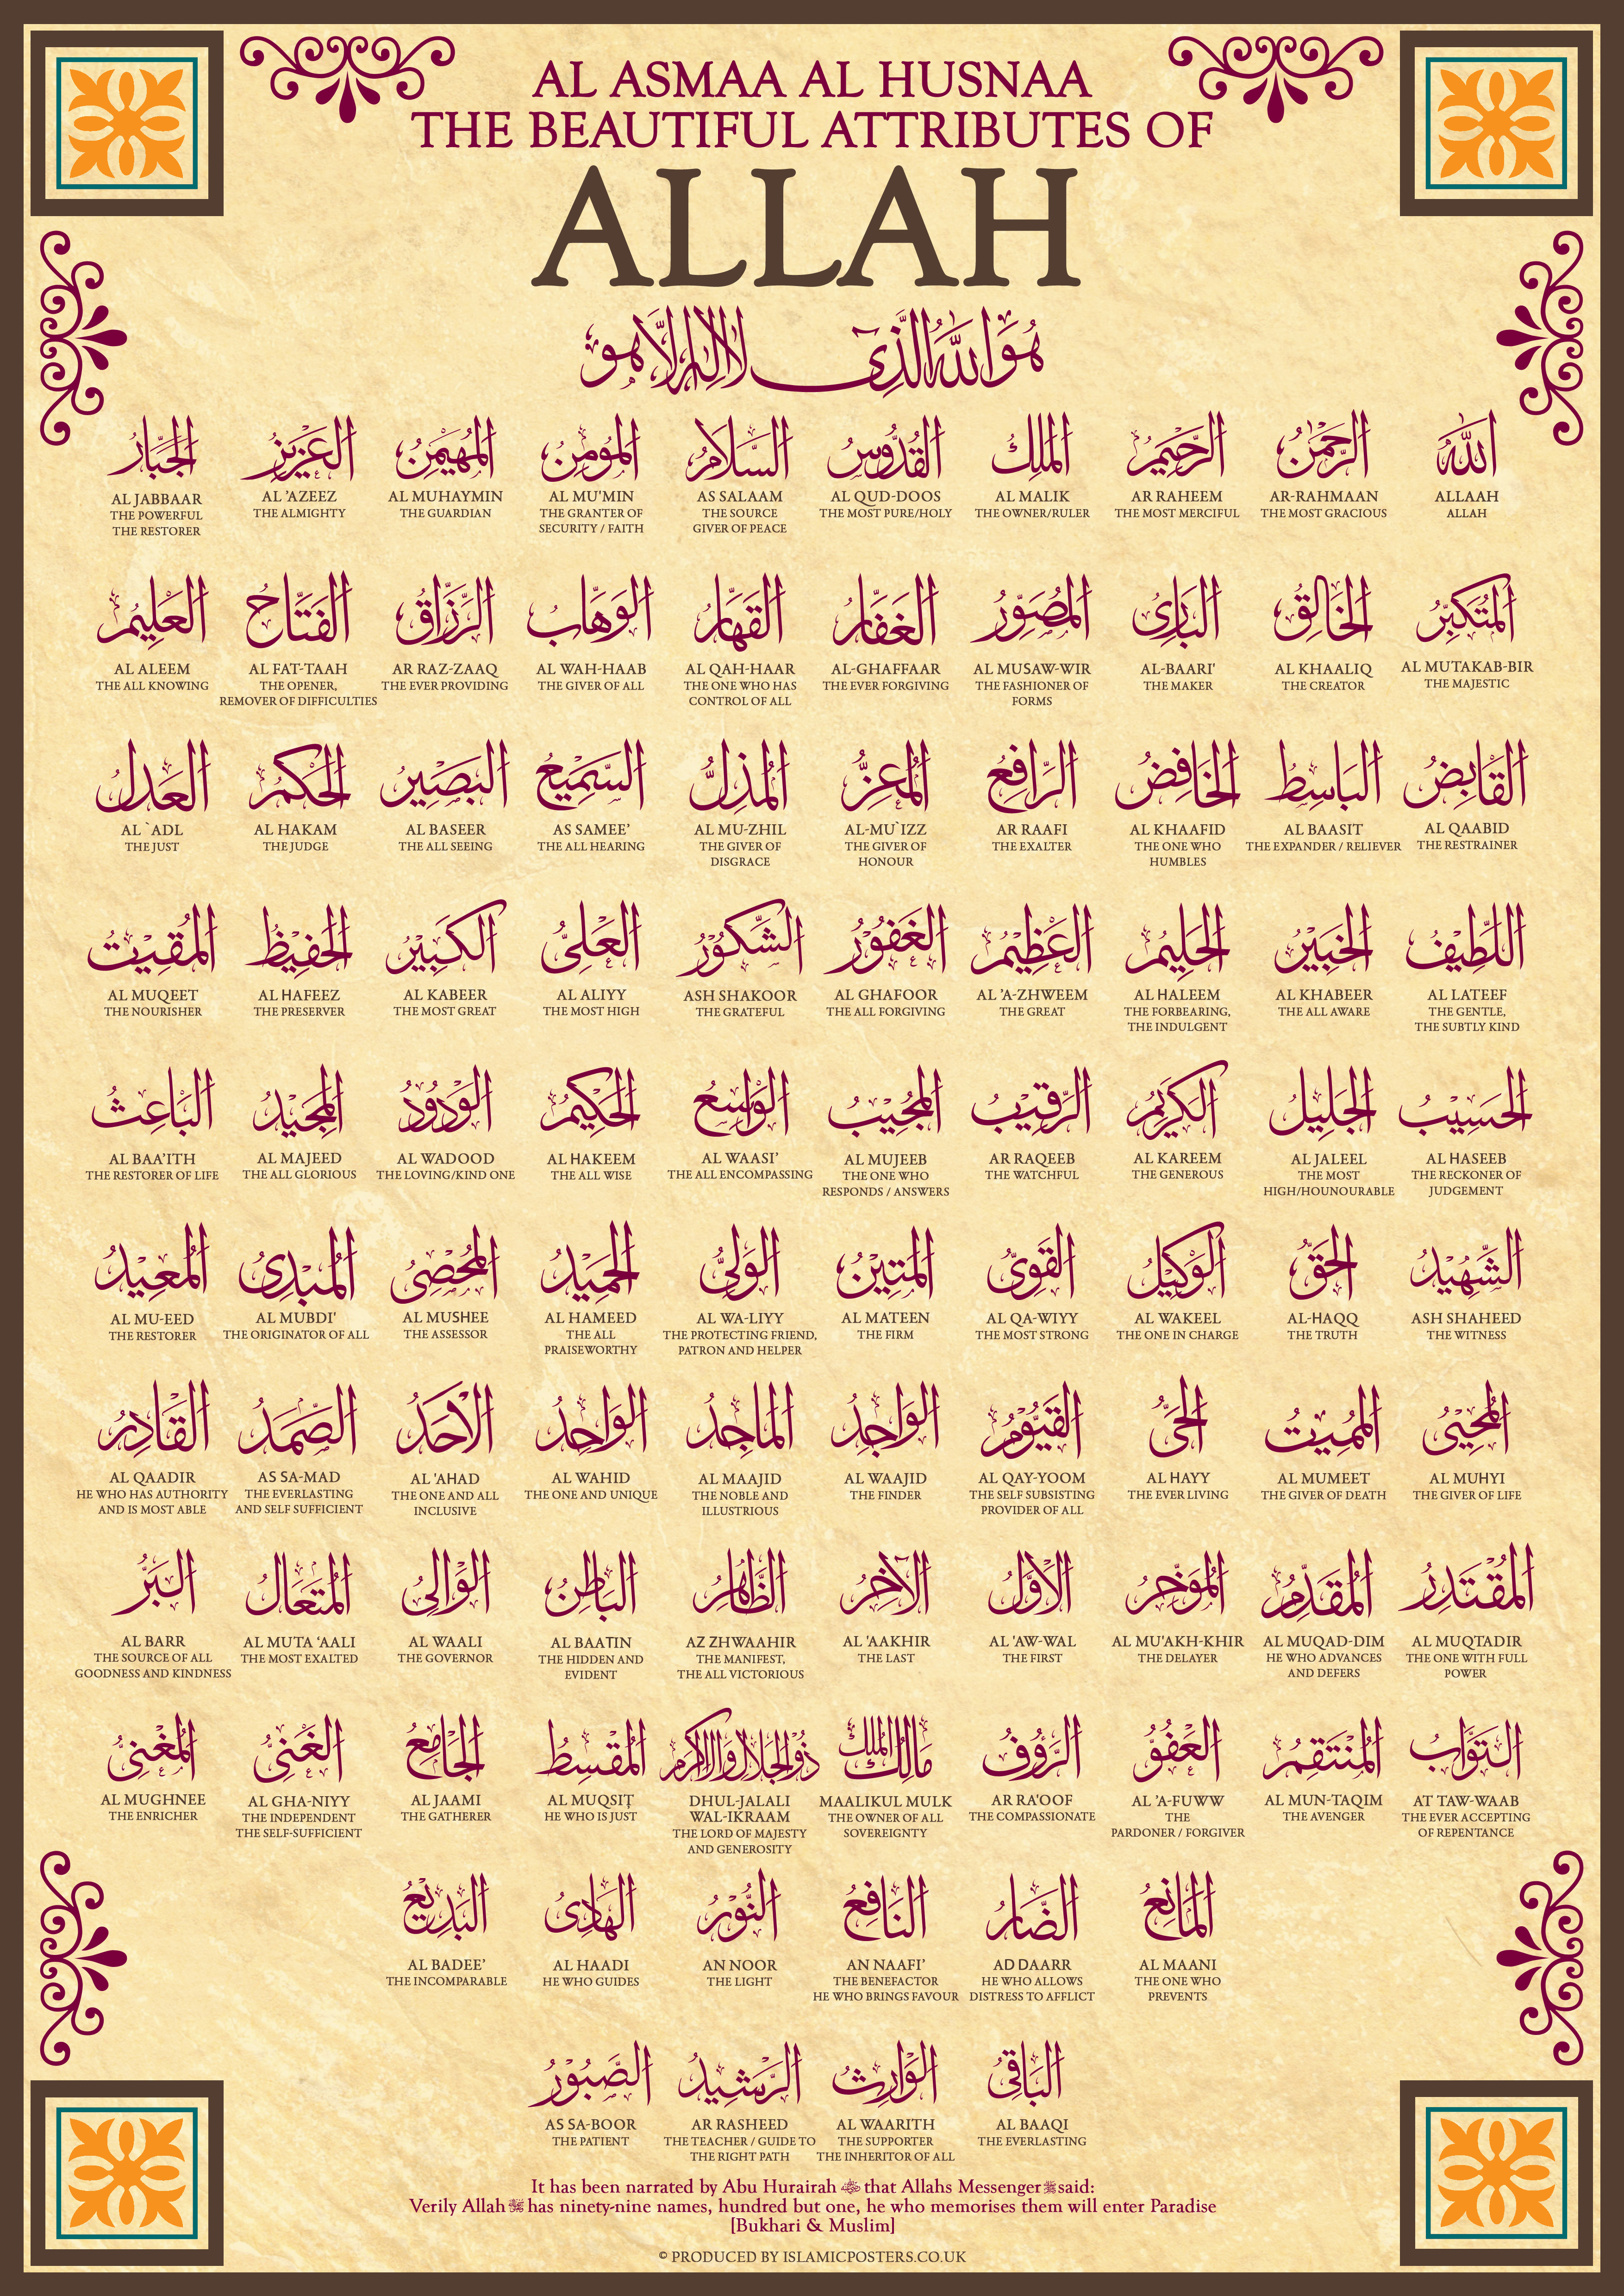 AL ASMAA AL HUSNAA
THE BEAUTIFUL ATTRIBUTES OF
ALLAH
هُوَ اللهُ الَّذِي لَا إِلٰهَ إِلَّا هُوَ
اللهُ
ALLAAH
ALLAH
الرَّحْمٰنُ
AR-RAHMAAN
THE MOST GRACIOUS
الرَّحِيْمُ
AR RAHEEM
THE MOST MERCIFUL
المَلِكُ
AL MALIK
THE OWNER/RULER
القُدُّوسُ
AL QUD-DOOS
THE MOST PURE/HOLY
السَّلَامُ
AS SALAAM
THE SOURCE
GIVER OF PEACE
المُؤمِنُ
AL MU'MIN
THE GRANTER OF
SECURITY / FAITH
المُهَيْمِنُ
AL MUHAYMIN
THE GUARDIAN
العَزِيْزُ
AL 'AZEEZ
THE ALMIGHTY
الجَبَّارُ
AL JABBAAR
THE POWERFUL
THE RESTORER
المُتَكَبِّرُ
AL MUTAKAB-BIR
THE MAJESTIC
الخَالِقُ
AL KHAALIQ
THE CREATOR
البَارِئُ
AL-BAARI'
THE MAKER
المُصَوِّرُ
AL MUSAW-WIR
THE FASHIONER OF
FORMS
الغَفَّارُ
AL-GHAFFAAR
THE EVER FORGIVING
القَهَّارُ
AL QAH-HAAR
THE ONE WHO HAS
CONTROL OF ALL
الوَهَّابُ
AL WAH-HAAB
THE GIVER OF ALL
الرَّزَّاقُ
AR RAZ-ZAAQ
THE EVER PROVIDING
الفَتَّاحُ
AL FAT-TAAH
THE OPENER,
REMOVER OF DIFFICULTIES
العَلِيْمُ
AL ALEEM
THE ALL KNOWING
القَابِضُ
AL QAABID
THE RESTRAINER
البَاسِطُ
AL BAASIT
THE EXPANDER / RELIEVER
الخَافِضُ
AL KHAAFID
THE ONE WHO
HUMBLES
الرَّافِعُ
AR RAAFI
THE EXALTER
المُعِزُّ
AL-MU`IZZ
THE GIVER OF
HONOUR
المُذِلُّ
AL MU-ZHIL
THE GIVER OF
DISGRACE
السَّمِيْعُ
AS SAMEE’
THE ALL HEARING
البَصِيْرُ
AL BASEER
THE ALL SEEING
الحَكَمُ
AL HAKAM
THE JUDGE
العَدلُ
AL `ADL
THE JUST
اللَّطِيْفُ
AL LATEEF
THE GENTLE,
THE SUBTLY KIND
الخَبِيْرُ
AL KHABEER
THE ALL AWARE
الحَلِيْمُ
AL HALEEM
THE FORBEARING,
THE INDULGENT
العَظِيْمُ
AL ’A-ZHWEEM
THE GREAT
الغَفُوْرُ
AL GHAFOOR
THE ALL FORGIVING
الشَّكُوْرُ
ASH SHAKOOR
THE GRATEFUL
العَلِيُّ
AL ALIYY
THE MOST HIGH
الكَبِيْرُ
AL KABEER
THE MOST GREAT
الحَفِيْظُ
AL HAFEEZ
THE PRESERVER
المُقِيْتُ
AL MUQEET
THE NOURISHER
الحَسِيْبُ
AL HASEEB
THE RECKONER OF
JUDGEMENT
الجَلِيْلُ
AL JALEEL
THE MOST
HIGH/HOUNOURABLE
الكَرِيْمُ
AL KAREEM
THE GENEROUS
الرَّقِيْبُ
AR RAQEEB
THE WATCHFUL
المُجِيْبُ
AL MUJEEB
THE ONE WHO
RESPONDS / ANSWERS
الوَاسِعُ
AL WAASI’
THE ALL ENCOMPASSING
الحَكِيْمُ
AL HAKEEM
THE ALL WISE
الوَدُوْدُ
AL WADOOD
THE LOVING/KIND ONE
المَجِيْدُ
AL MAJEED
THE ALL GLORIOUS
البَاعِثُ
AL BAA’ITH
THE RESTORER OF LIFE
الشَّهِيْدُ
ASH SHAHEED
THE WITNESS
الحَقُّ
AL-HAQQ
THE TRUTH
الوَكِيْلُ
AL WAKEEL
THE ONE IN CHARGE
القَوِيُّ
AL QA-WIYY
THE MOST STRONG
المَتِيْنُ
AL MATEEN
THE FIRM
الوَلِيُّ
AL WA-LIYY
THE PROTECTING FRIEND,
PATRON AND HELPER
الحَمِيْدُ
AL HAMEED
THE ALL
PRAISEWORTHY
المُحْصِي
AL MUSHEE
THE ASSESSOR
المُبْدِئُ
AL MUBDI'
THE ORIGINATOR OF ALL
المُعِيْدُ
AL MU-EED
THE RESTORER
المُحْيِي
AL MUHYI
THE GIVER OF LIFE
المُمِيْتُ
AL MUMEET
THE GIVER OF DEATH
الحَيُّ
AL HAYY
THE EVER LIVING
القَيُّوْمُ
AL QAY-YOOM
THE SELF SUBSISTING
PROVIDER OF ALL
الوَاجِدُ
AL WAAJID
THE FINDER
المَاجِدُ
AL MAAJID
THE NOBLE AND
ILLUSTRIOUS
الوَاحِدُ
AL WAHID
THE ONE AND UNIQUE
الاَحَدُ
AL 'AHAD
THE ONE AND ALL
INCLUSIVE
الصَّمَدُ
AS SA-MAD
THE EVERLASTING
AND SELF SUFFICIENT
القَادِرُ
AL QAADIR
HE WHO HAS AUTHORITY
AND IS MOST ABLE
المُقْتَدِرُ
AL MUQTADIR
THE ONE WITH FULL
POWER
المُقَدِّمُ
AL MUQAD-DIM
HE WHO ADVANCES
AND DEFERS
المُؤَخِّرُ
AL MU'AKH-KHIR
THE DELAYER
الاَوَّلُ
AL 'AW-WAL
THE FIRST
الآخِرُ
AL 'AAKHIR
THE LAST
الظَّاهِرُ
AZ ZHWAAHIR
THE MANIFEST,
THE ALL VICTORIOUS
البَاطِنُ
AL BAATIN
THE HIDDEN AND
EVIDENT
الوَالِي
AL WAALI
THE GOVERNOR
المُتَعَالُ
AL MUTA ‘AALI
THE MOST EXALTED
البَرُّ
AL BARR
THE SOURCE OF ALL
GOODNESS AND KINDNESS
التَّوَّابُ
AT TAW-WAAB
THE EVER ACCEPTING
OF REPENTANCE
المُنْتَقِمُ
AL MUN-TAQIM
THE AVENGER
العَفُوُّ
AL ’A-FUWW
THE
PARDONER / FORGIVER
الرَّؤُفُ
AR RA'OOF
THE COMPASSIONATE
مَالِكُ المُلْكِ
MAALIKUL MULK
THE OWNER OF ALL
SOVEREIGNTY
ذُوالجَلَالِ وَالاِكْرَامِ
DHUL-JALALI
WAL-IKRAAM
THE LORD OF MAJESTY
AND GENEROSITY
المُقْسِطُ
AL MUQSIT
HE WHO IS JUST
الجَامِعُ
AL JAAMI
THE GATHERER
الغَنِيُّ
AL GHA-NIYY
THE INDEPENDENT
THE SELF-SUFFICIENT
المُغْنِيُّ
AL MUGHNEE
THE ENRICHER
المَانِعُ
AL MAANI
THE ONE WHO
PREVENTS
الضَّارُ
AD DAARR
HE WHO ALLOWS
DISTRESS TO AFFLICT
النَافِعُ
AN NAAFI’
THE BENEFACTOR
HE WHO BRINGS FAVOUR
النُّوْرُ
AN NOOR
THE LIGHT
الهَادِي
AL HAADI
HE WHO GUIDES
البَدِيْعُ
AL BADEE’
THE INCOMPARABLE
البَاقِي
AL BAAQI
THE EVERLASTING
الوَارِثُ
AL WAARITH
THE SUPPORTER
THE INHERITOR OF ALL
الرَّشِيْدُ
AR RASHEED
THE TEACHER / GUIDE TO
THE RIGHT PATH
الصَّبُوْرُ
AS SA-BOOR
THE PATIENT
It has been narrated by Abu Hurairah that Allahs Messenger ﷺ said:
Verily Allah has ninety-nine names, hundred but one, he who memorises them will enter Paradise
[Bukhari & Muslim]
© PRODUCED BY ISLAMICPOSTERS.CO.UK